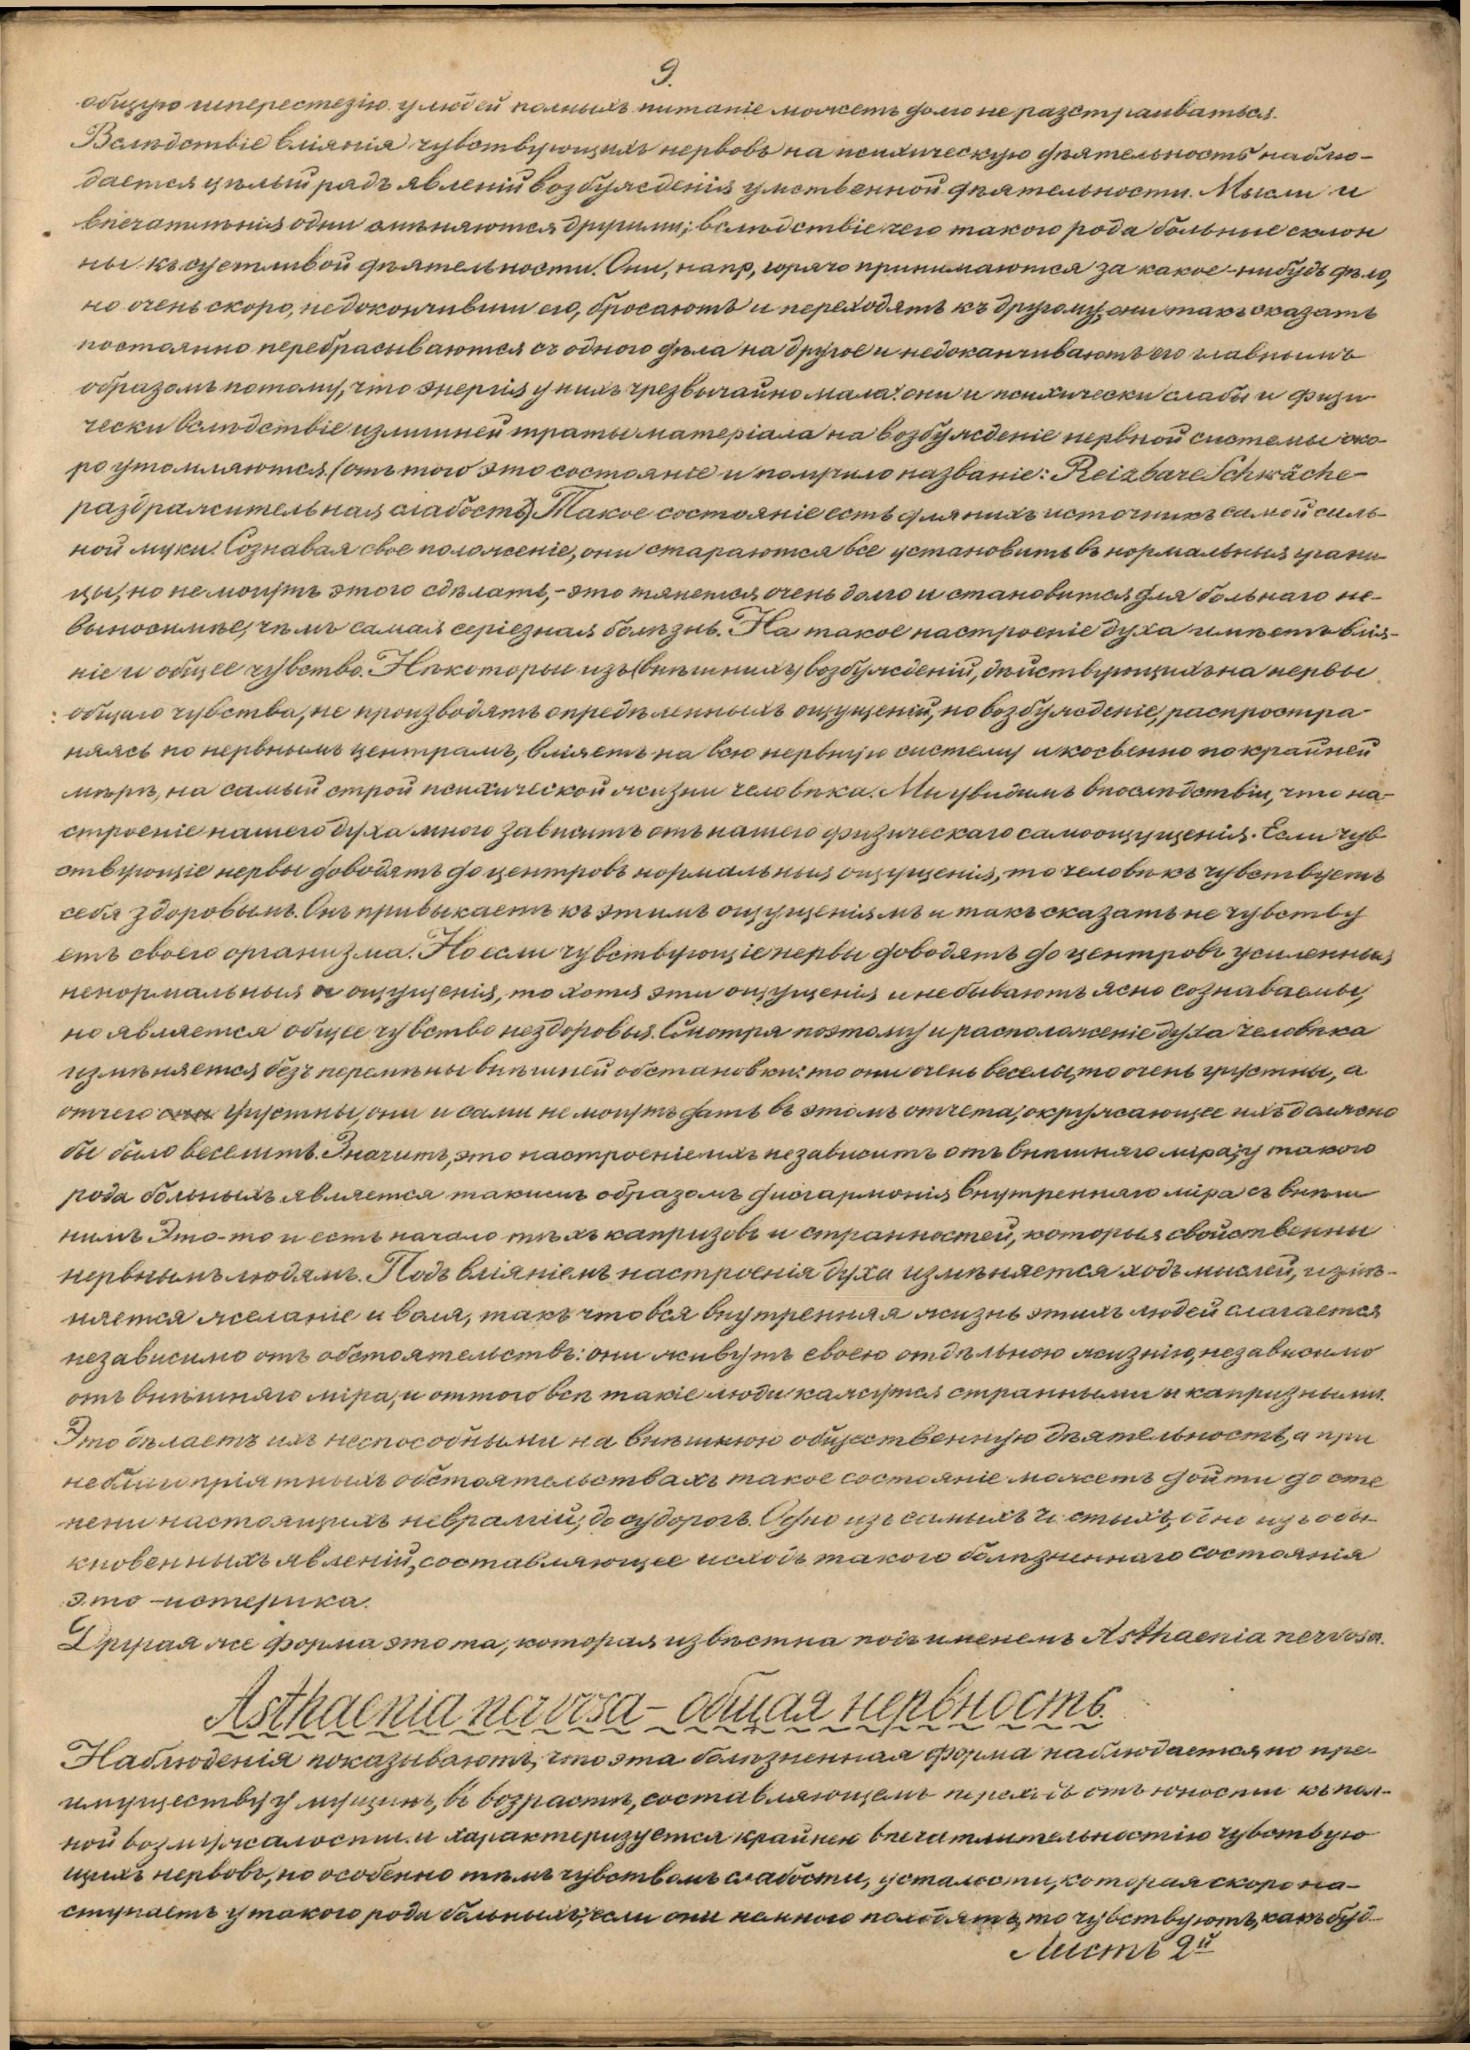 9.
общую гиперестезію. у людей полныхъ питаніе можетъ долго не разстраиваться.
Вслѣдствіе вліянія чувствующихъ нервовъ на психическую дѣятельность наблю-
дается цѣлый рядъ явленій возбужденія умственной дѣятельности. Мысли и
впечатлѣнія одни смѣняются другими; вслѣдствіе чего такого рода больные склон
ны къ суетливой дѣятельности. Они, напр, горячо принимаются за какое-нибудь дѣло,
но очень скоро, недокончивши его, бросаютъ и переходятъ къ другому, они такъ сказать
постоянно перебрасываются съ одного дѣла на другое и недоканчиваютъ его главнымъ
образомъ потому, что энергія у нихъ чрезвычайно мала: они и психически слабы и физи
чески вслѣдствіе излишней траты матеріала на возбужденіе нервной системы ско-
ро утомляются, (отъ того это состояніе и получило названіе: Reizbare Schwäche-
раздражительная слабость). Такое состояніе есть для нихъ источникъ самой силь-
ной муки. Сознавая свое положеніе, они стараются все установить въ нормальныя грани
цы, но не могутъ этого сдѣлать, - это тянется очень долго и становится для больнаго не-
выносимѣе, чѣмъ самая серіезная болѣзнь. На такое настроеніе духа имѣетъ влія-
ніе и общее чувство. Нѣкоторыи изъ (внѣшнихъ) возбужденій, дѣйствующихъ на нервы
общаго чувства, не производятъ опредѣленныхъ ощущеній, но возбужденіе, распростра-
няясь по нервнымъ центрамъ, вліяетъ на всю нервную систему и косвенно по крайней
мѣрѣ, на самый строй психической жизни человѣка. Мы увидимъ впослѣдствіи, что на-
строеніе нашего духа много зависитъ отъ нашего физическаго самоощущенія. Если чув
ствующіе нервы доводятъ до центровъ нормальныя ощущенія, то человѣкъ чувствуетъ
себя здоровымъ. Онъ привыкаетъ къ этимъ ощущеніямъ и такъ сказать не чувству
етъ своего организма. Но если чувствующіе нервы доводятъ до центровъ усиленныя
ненормальныя ощущенія, то хотя эти ощущенія и не бываютъ ясно сознаваемы,
но является общее чувство нездоровья. Смотря поэтому и расположеніе духа человѣка
измѣняется безъ перемѣны внѣшней обстановки: то они очень веселы, то очень грустны, а
отчего они грустны, они и сами не могутъ дать въ этомъ отчета; окружающее ихъ должно
бы было веселить. Значитъ, это настроеніе ихъ независитъ отъ внѣшняго міра; у такого
рода больныхъ является такимъ образомъ дисгармонія внутренняго міра съ внѣш
нимъ. Это-то и есть начало тѣхъ капризовъ и странностей, которыя свойственны
нервнымъ людямъ. Подъ вліяніемъ настроенія духа измѣняется ходъ мыслей, измѣ-
няется желаніе и воля, такъ что вся внутренняя жизнь этихъ людей слагается
независимо отъ обстоятельствъ: они живутъ своею отдѣльною жизнію, независимо
отъ внѣшняго міра, и оттого всѣ такіе люди кажутся странными и капризными.
Это дѣлаетъ ихъ неспособными на внѣшнюю общественную дѣятельность, а при
неблагопріятныхъ обстоятельствахъ такое состояніе можетъ дойти до сте
пени настоящихъ невралгій, до судорогъ. Одно изъ самыхъ частыхъ, одно изъ обы
кновенныхъ явленій, составляющее исходъ такого болѣзненнаго состоянія
это - истерика.
Другая же форма это та, которая извѣстна подъ именемъ Asthaenia nervosa.
Asthaenia nervosa - общая нервность.
Наблюденія показываютъ, что эта болѣзненная форма наблюдается по пре-
имуществу у мущинъ, въ возрастѣ, составляющемъ переходъ отъ юности къ пол-
ной возмужалости. и характеризуется крайнею впечатлительностію чувствую
щихъ нервовъ, но особенно тѣмъ чувствомъ слабости, усталости, которая скоро на-
ступаетъ у такого рода больныхъ; если они немного походятъ, то чувствуютъ, какъ буд-
Листъ 2й